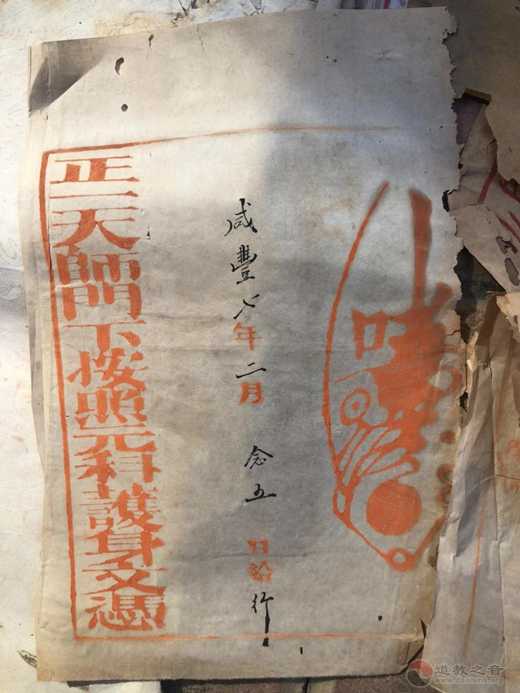 咸豐七年二月 念五日給行
正一天師門下按照元科護身文憑
道教之音